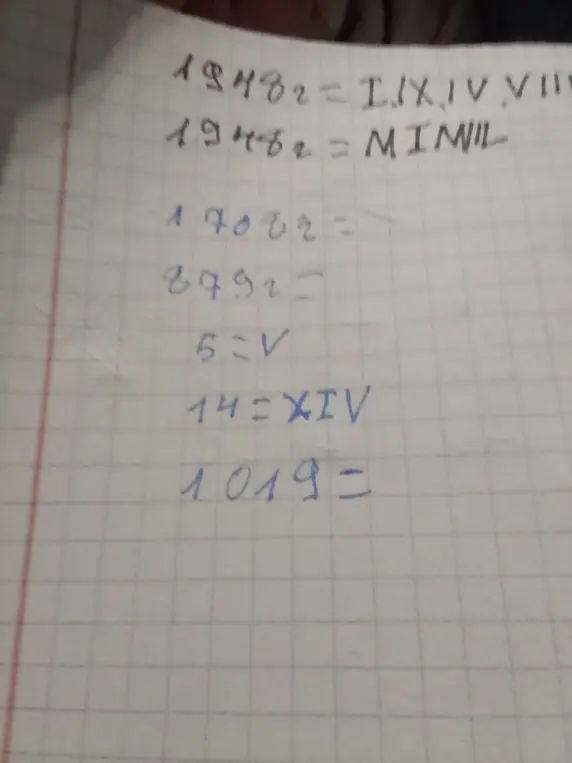 1948г = I.IX.IV.VIII
1948г = MIM
1708г =
879г =
5 = V
14 = XIV
1019 =